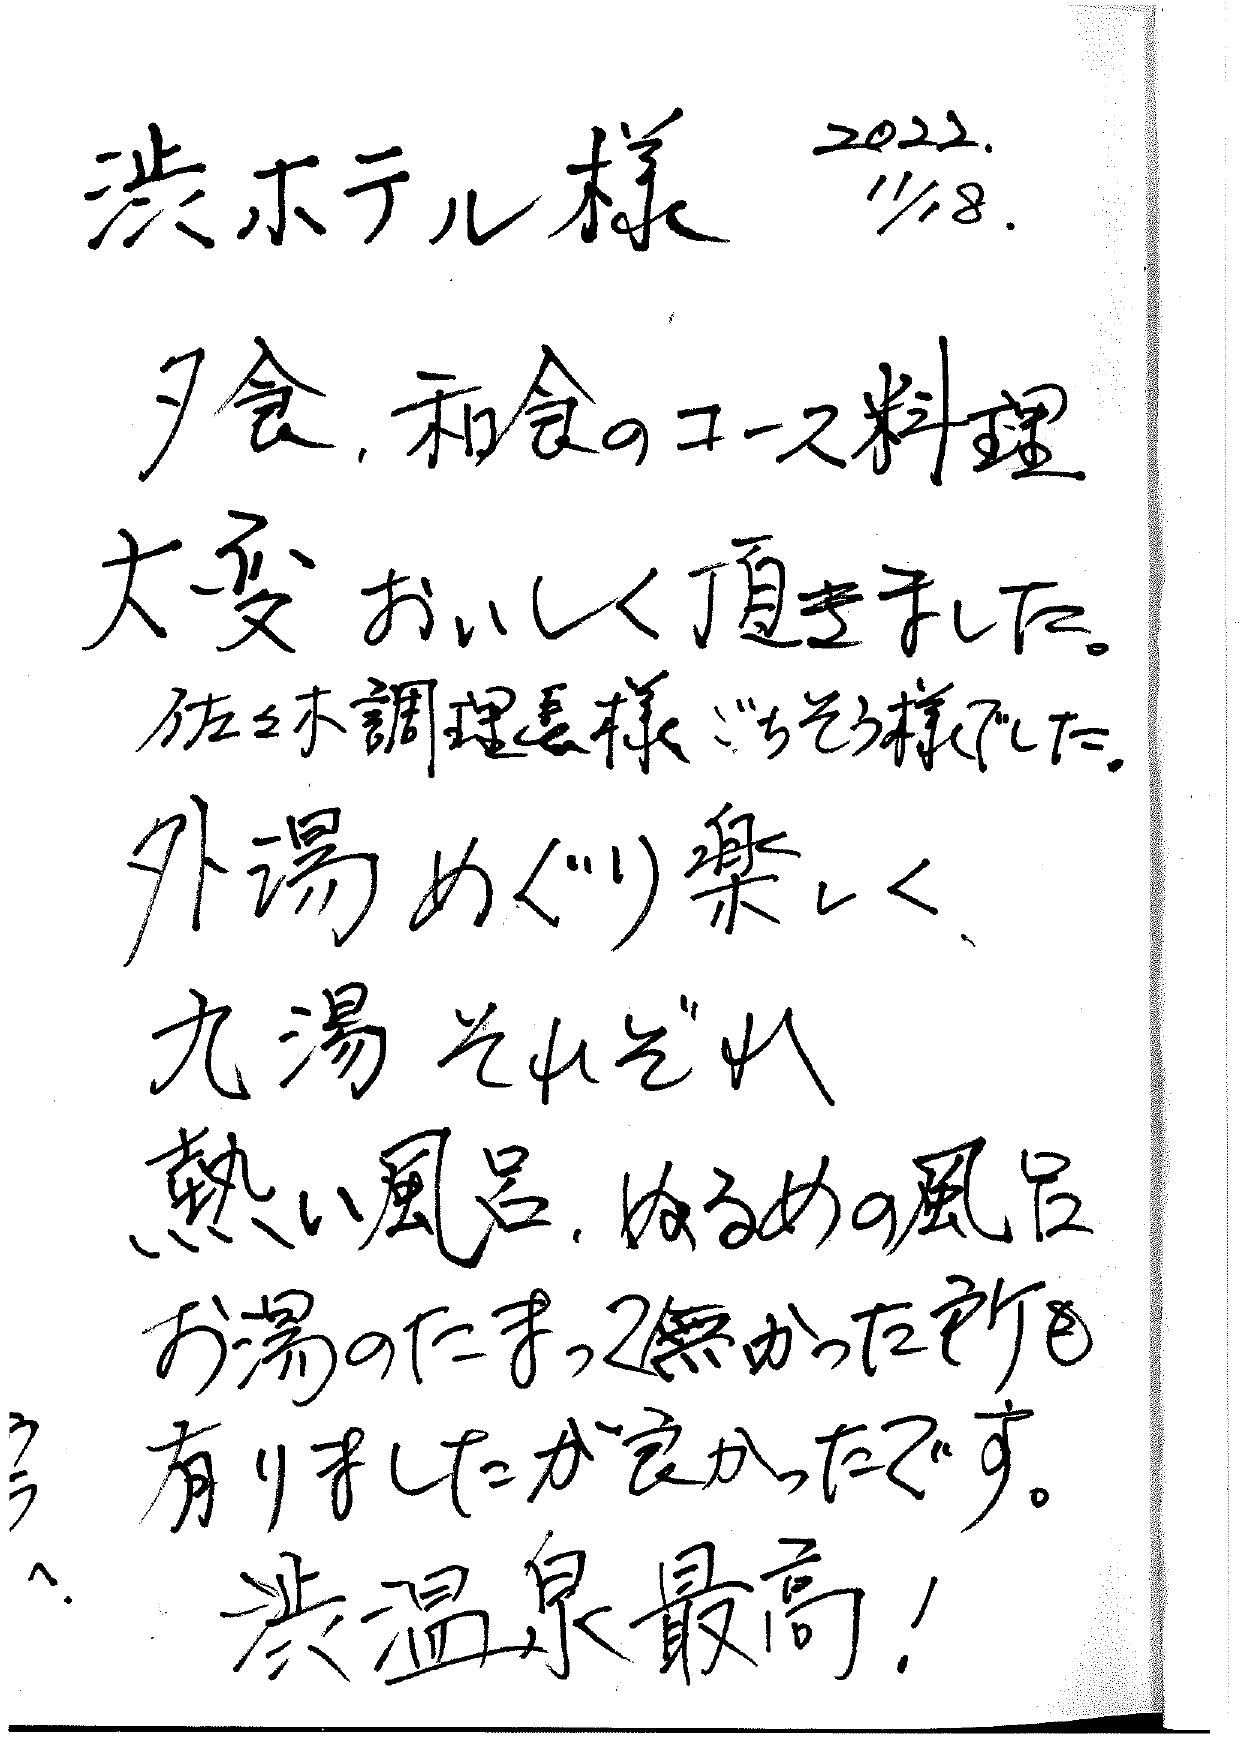 渋ホテル様 2022.
11/18.
夕食、和食のコース料理
大変おいしく頂きました。
佐々木調理長様ごちそう様でした。
外湯めぐり楽しく、
九湯それぞれ
熱い風呂、ぬるめの風呂
お湯のたまって無かった所も
有りましたが良かったです。
渋温泉最高!
ウラへ.